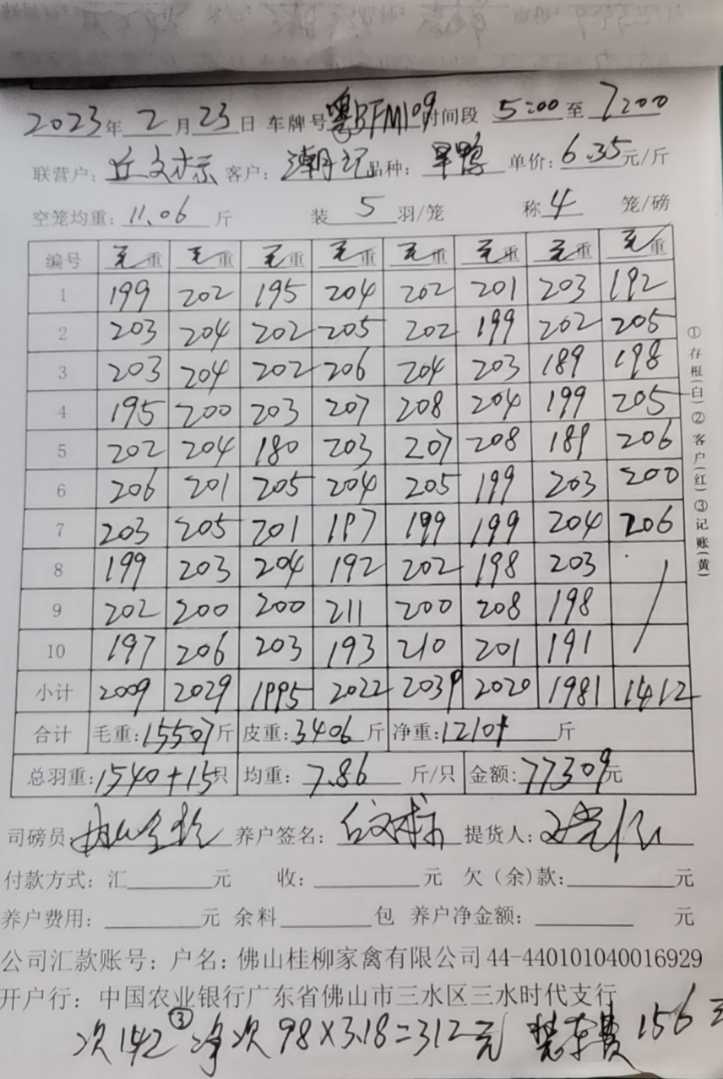 2023年 2月23日 车牌号 粤BFM109 时间段 5:00 至 7:00
联营户: 丘文标 客户: 潮记 品种: 旱鸭 单价: 6.35 元/斤
空笼均重: 11.06 斤 装 5 羽/笼 称 4 笼/磅
编号 毛重 毛重 毛重 毛重 毛重 毛重 毛重 毛重
1 199 202 195 204 202 201 203 192
2 203 204 202 205 202 199 202 205
3 203 204 202 206 204 203 189 198
4 195 200 203 207 208 204 199 205
5 202 204 180 203 207 208 189 206
6 206 201 205 204 205 199 203 200
7 203 205 201 197 199 199 204 206
8 199 203 204 192 202 198 203
9 202 200 200 211 200 208 198
10 197 206 203 193 210 201 191
小计 2009 2029 1995 2022 2039 2020 1981 1412
合计 毛重: 15507 斤 皮重: 3406 斤 净重: 12101 斤
总羽重: 1540+15 只 均重: 7.86 斤/只 金额: 77309 元
司磅员: 养户签名: 提货人:
付款方式: 汇 元 收: 元 欠(余)款: 元
养户费用: 元 余料 包 养户净金额: 元
公司汇款账号: 户名: 佛山桂柳家禽有限公司 44-440101040016929
开户行: 中国农业银行广东省佛山市三水区三水时代支行
次142 ③ 净次98×3.18=312元 装车费156元
①存根(白)②客户(红)③记账(黄)